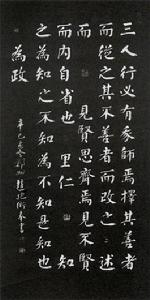 三人行必有我師焉擇其善者
而從之其不善者而改之 述
而 見賢思齊焉見不賢
而內自省也 里仁 知
之為知之不知為不知是知也
為政 辛巳
書